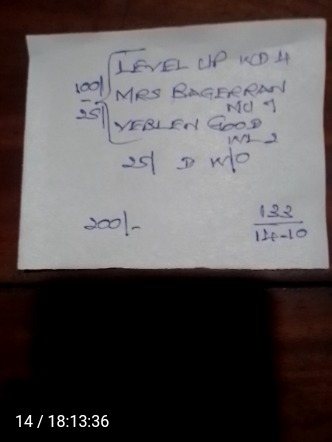 LEVEL UP KD 4
100/ MRS BAGERRAN
MU 9
25/ VEBLEN GOOD
WL 2
25/ D W/O
200/-
133
14-10
14 / 18:13:36